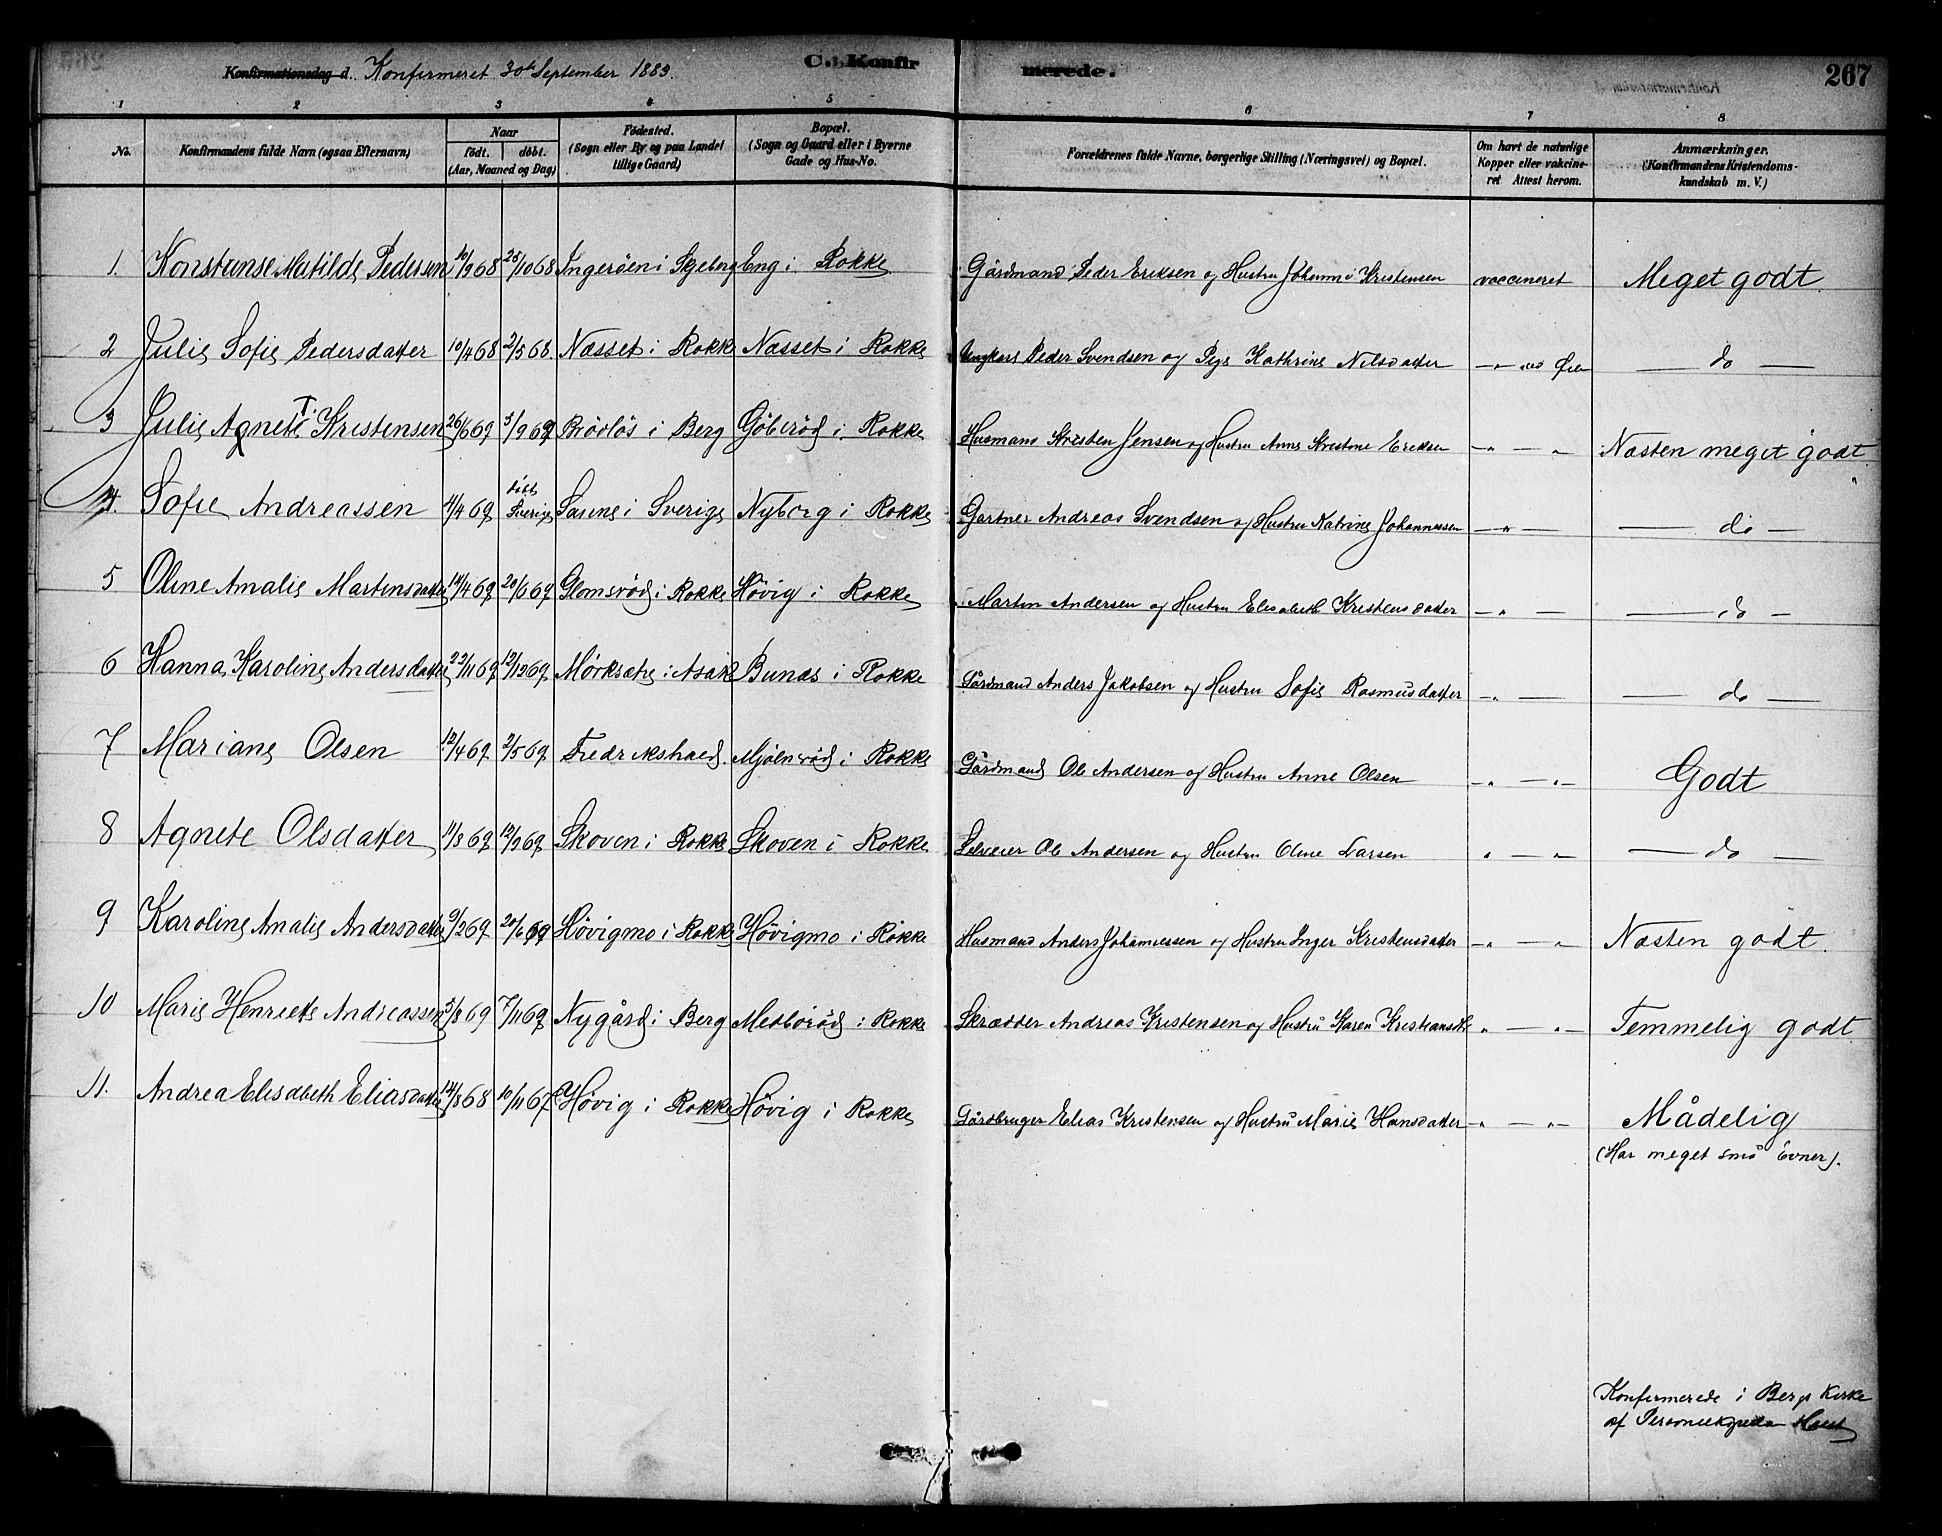 Konfirmationsdag d. Konfirmeret 30te September 1883. C. Konfirmerede. 267
1 2 3 4 5 6 7 8
No. Konfirmandens fulde Navn (ogsaa Efternavn) Naar født. døbt. (Aar, Maaned og Dag) Fødested. (Sogn eller By og paa Landet tillige Gaard) Bopæl. (Sogn og Gaard eller i Byerne Gade og Hus-No. Forældrenes fulde Navne, borgerlige Stilling (Næringsvei) og Bopæl. Om havt de naturlige Kopper eller vakcineret Attest herom. Anmærkninger. (Konfirmandens Kristendomskundskab m. V.)
1. Konstanse Matilde Pedersen 10/9 68 25/10 68 Ingerøen i Skjeberg Eng i Rokke Gårdmand Peder Eriksen og Hustru Johanne Kristensen vaccineret Meget godt
2 Julie Sofie Pedersdatter 10/4 68 2/5 68 Næsset i Rokke Næsset i Rokke Ungkarl Peder Svendsen og Pige Kathrine Nilsdatter —"— do —
3 Julie Agnete T. Kristensen 26/6 69 5/9 69 Brødløs i Berg Göbirød i Rokke Husmand Kristen Jensen og Hustru Anne Kristine Eriksen —"—"— Næsten meget godt
4. Sofie Andreassen 4/4 69 døbt Sverige i Sverige Nyborg i Rokke Gartner Andreas Svendsen og Hustru Katrine Johannessen —"— — do —
5 Oline Amalie Martinsdatter 14/4 69 20/6 69 Glomsrød i Rokke Høvig i Rokke Martin Andersen og Hustru Elisabeth Kristensdatter —"— — do —
6 Hanna Karoline Andersdatter 22/11 69 12/12 69 Mørksæte i Asak Bunæs i Rokke Gårdmand Anders Jakobsen og Hustru Sofie Rasmusdatter —"— — do —
7 Mariane Olsen 12/4 69 2/5 69 Fredrikshald Mjølnerød i Rokke Gårdmand Ole Andersen og Hustru Anne Olsen —"—"— Godt
8 Agnete Olsdatter 11/8 69 12/9 69 Skoven i Rokke Skoven i Rokke Selveier Ole Andersen og Hustru Oline Larsen "—"— — do —
9 Karoline Amalie Andersdatter 9/2 69 20/6 69 Høvigmo i Rokke Høvigmo i Rokke Husmand Anders Johannessen og Hustru Inger Kristensdatter —"—"— Næsten godt.
10 Marie Henriette Andreassen 5/8 69 7/11 69 Nygård i Berg Medbørød i Rokke Skrædder Andreas Kristensen og Hustru Karen Kristiansdtr "—"— Temmelig godt
11. Andrea Elisabeth Eliasdatter 14/8 68 10/11 67 Høvig i Rokke Høvig i Rokke Gårdbruger Elias Kristensen og Hustru Marie Hansdatter —"—"— Mådelig
(Har meget små Evner).
Konfirmerede i Bergs Kirke
af Personelkapellan